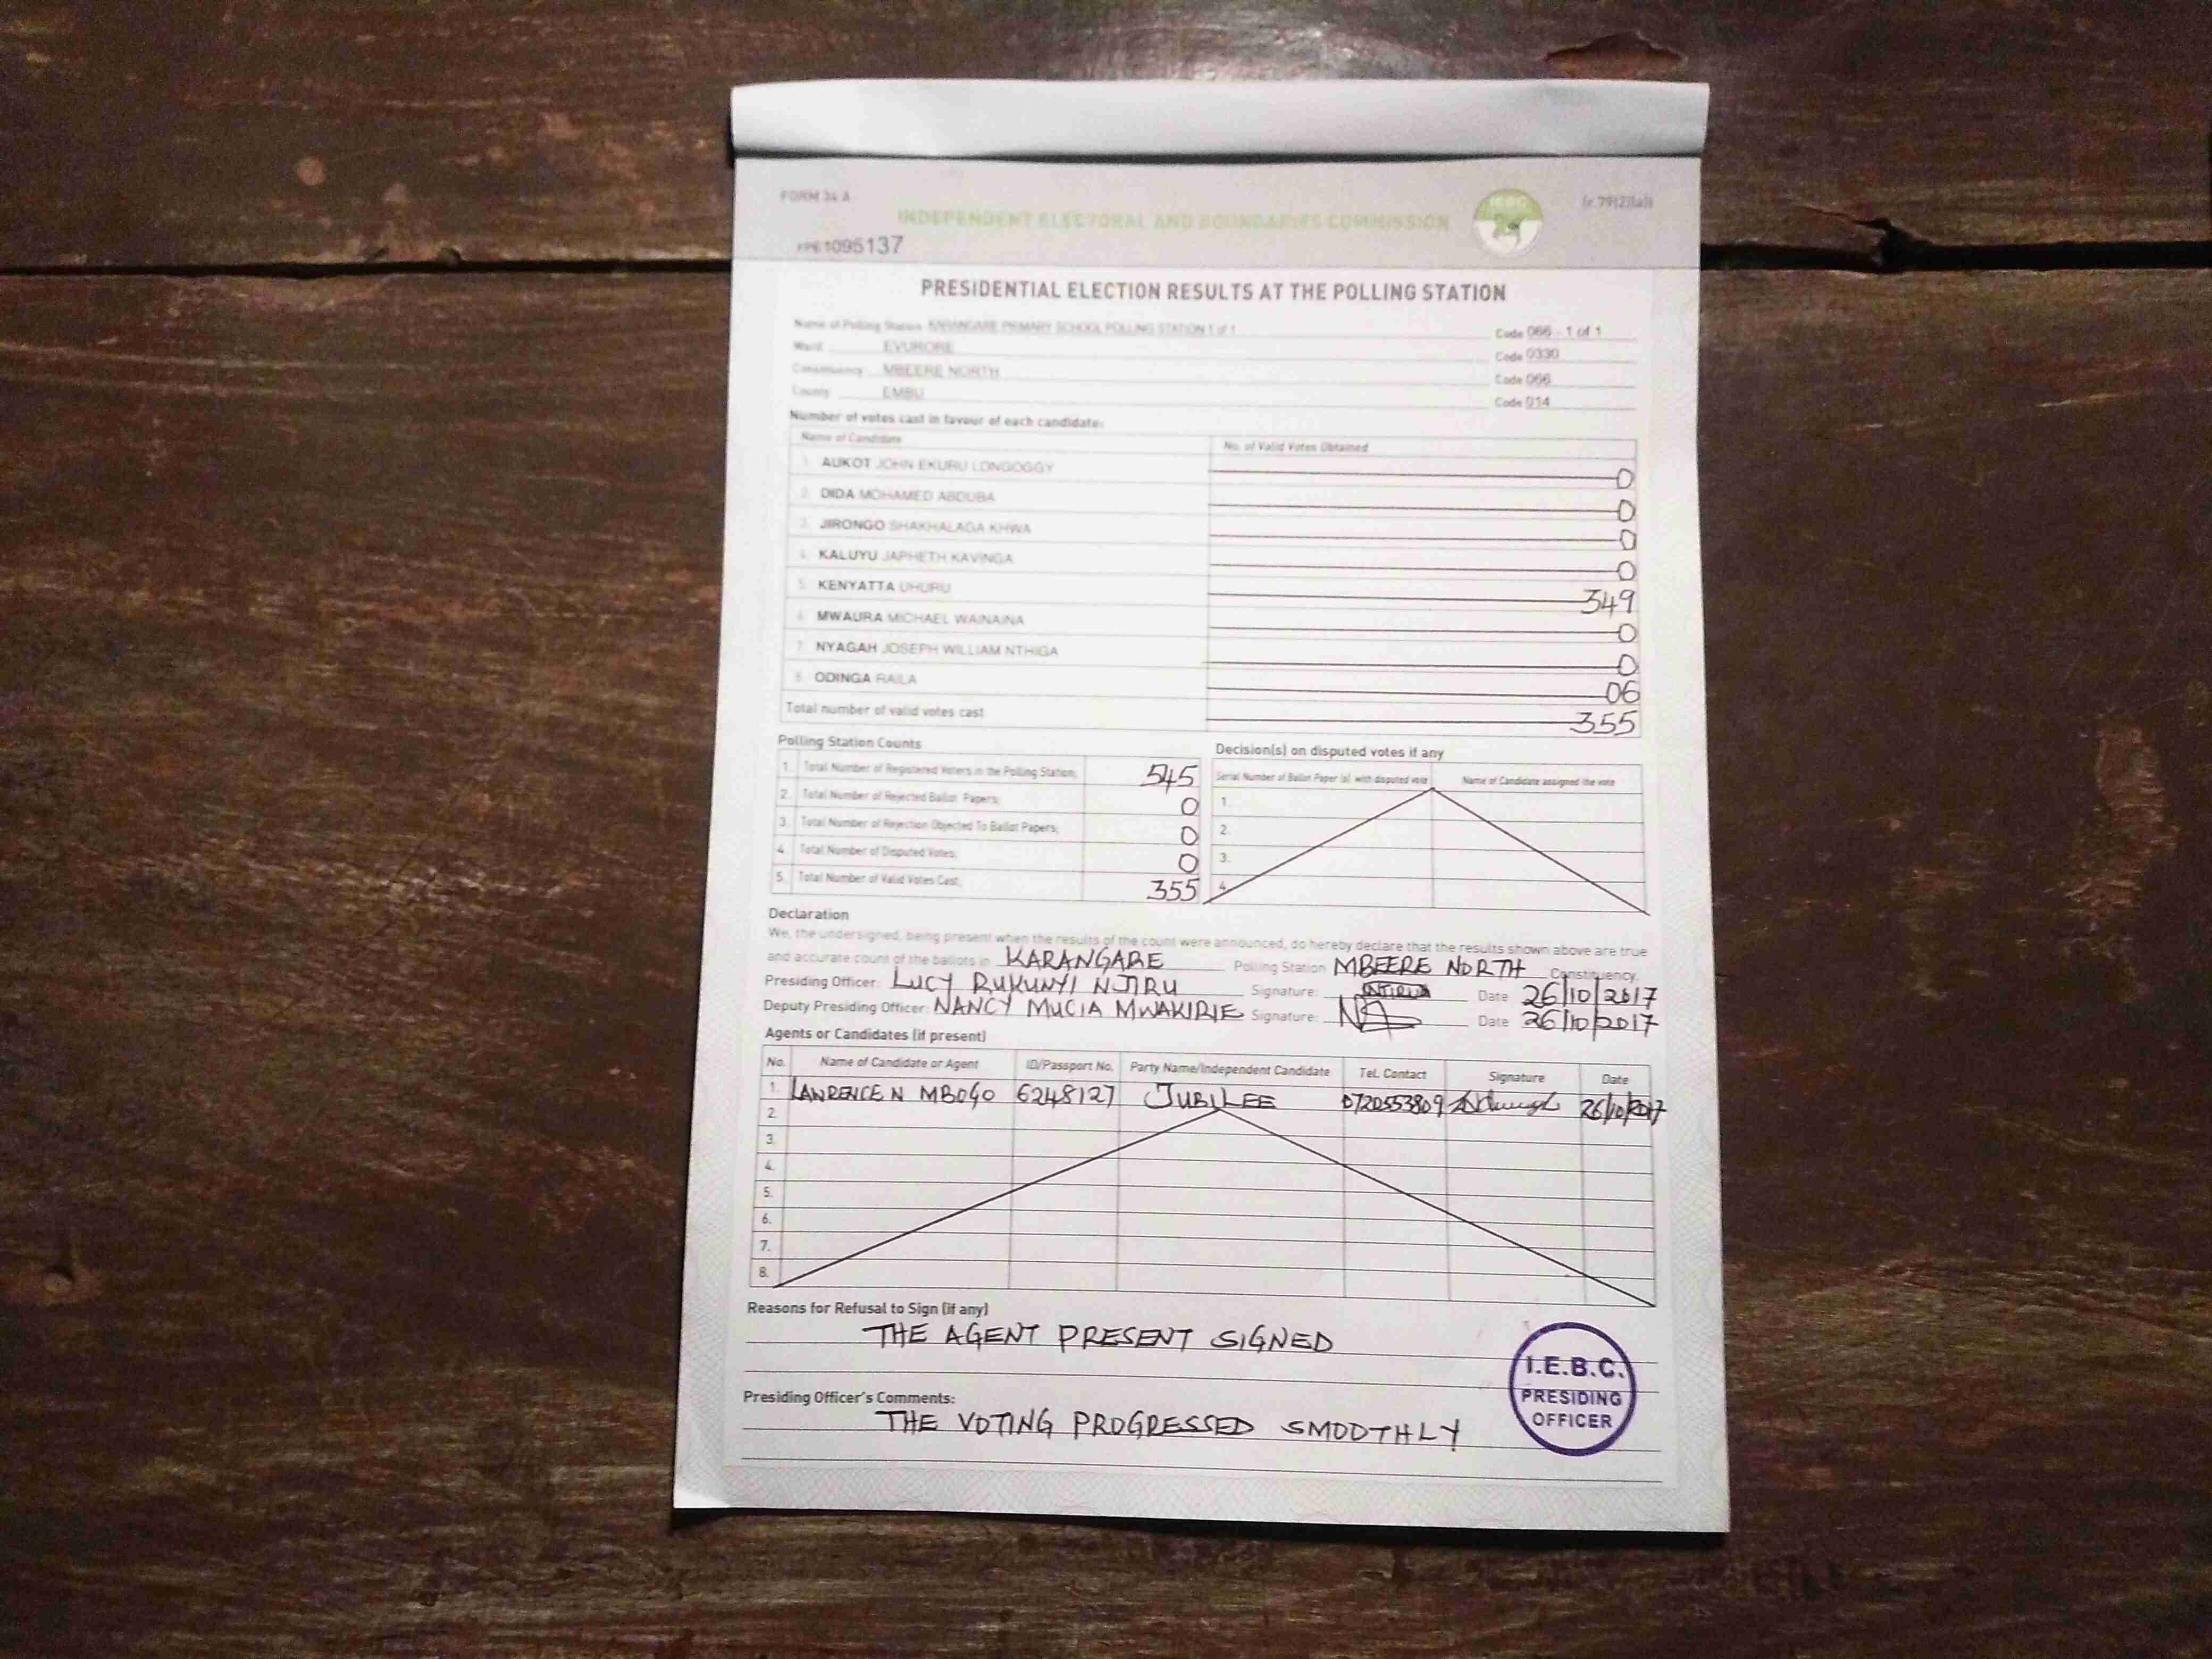 FORM 34 A
(r.79(2)(a))
INDEPENDENT ELECTORAL AND BOUNDARIES COMMISSION
IEBC
1095137
PRESIDENTIAL ELECTION RESULTS AT THE POLLING STATION
Name of Polling Station KARANGARE PRIMARY SCHOOL POLLING STATION 1 of 1 Code 066 - 1 of 1
Ward EVURORE Code 0330
Constituency MBEERE NORTH Code 066
County EMBU Code 014
Number of votes cast in favour of each candidate:
Name of Candidate No. of Valid Votes Obtained
1. AUKOT JOHN EKURU LONGOGGY 0
2. DIDA MOHAMED ABDUBA 0
3. JIRONGO SHAKHALAGA KHWA 0
4. KALUYU JAPHETH KAVINGA 0
5. KENYATTA UHURU 349
6. MWAURA MICHAEL WAINAINA 0
7. NYAGAH JOSEPH WILLIAM NTHIGA 0
8. ODINGA RAILA 06
Total number of valid votes cast 355
Polling Station Counts
1. Total Number of Registered Voters in the Polling Station; 545
2. Total Number of Rejected Ballot Papers; 0
3. Total Number of Rejection Objected To Ballot Papers; 0
4. Total Number of Disputed Votes; 0
5. Total Number of Valid Votes Cast; 355
Decision(s) on disputed votes if any
Serial Number of Ballot Paper (s) with disputed vote Name of Candidate assigned the vote
1.
2.
3.
4.
Declaration
We, the undersigned, being present when the results of the count were announced, do hereby declare that the results shown above are true
and accurate count of the ballots in KARANGARE Polling Station MBEERE NORTH Constituency.
Presiding Officer: LUCY RUKUNYI NJIRU Signature: Date 26/10/2017
Deputy Presiding Officer: NANCY MUCIA MWAKIRIE Signature: Date 26/10/2017
Agents or Candidates (if present)
No. Name of Candidate or Agent ID/Passport No. Party Name/Independent Candidate Tel. Contact Signature Date
1. LAWRENCE N MBOGO 6248127 JUBILEE 0720553809 26/10/2017
2.
3.
4.
5.
6.
7.
8.
Reasons for Refusal to Sign (if any)
THE AGENT PRESENT SIGNED
Presiding Officer's Comments:
THE VOTING PROGRESSED SMOOTHLY
I.E.B.C.
PRESIDING
OFFICER